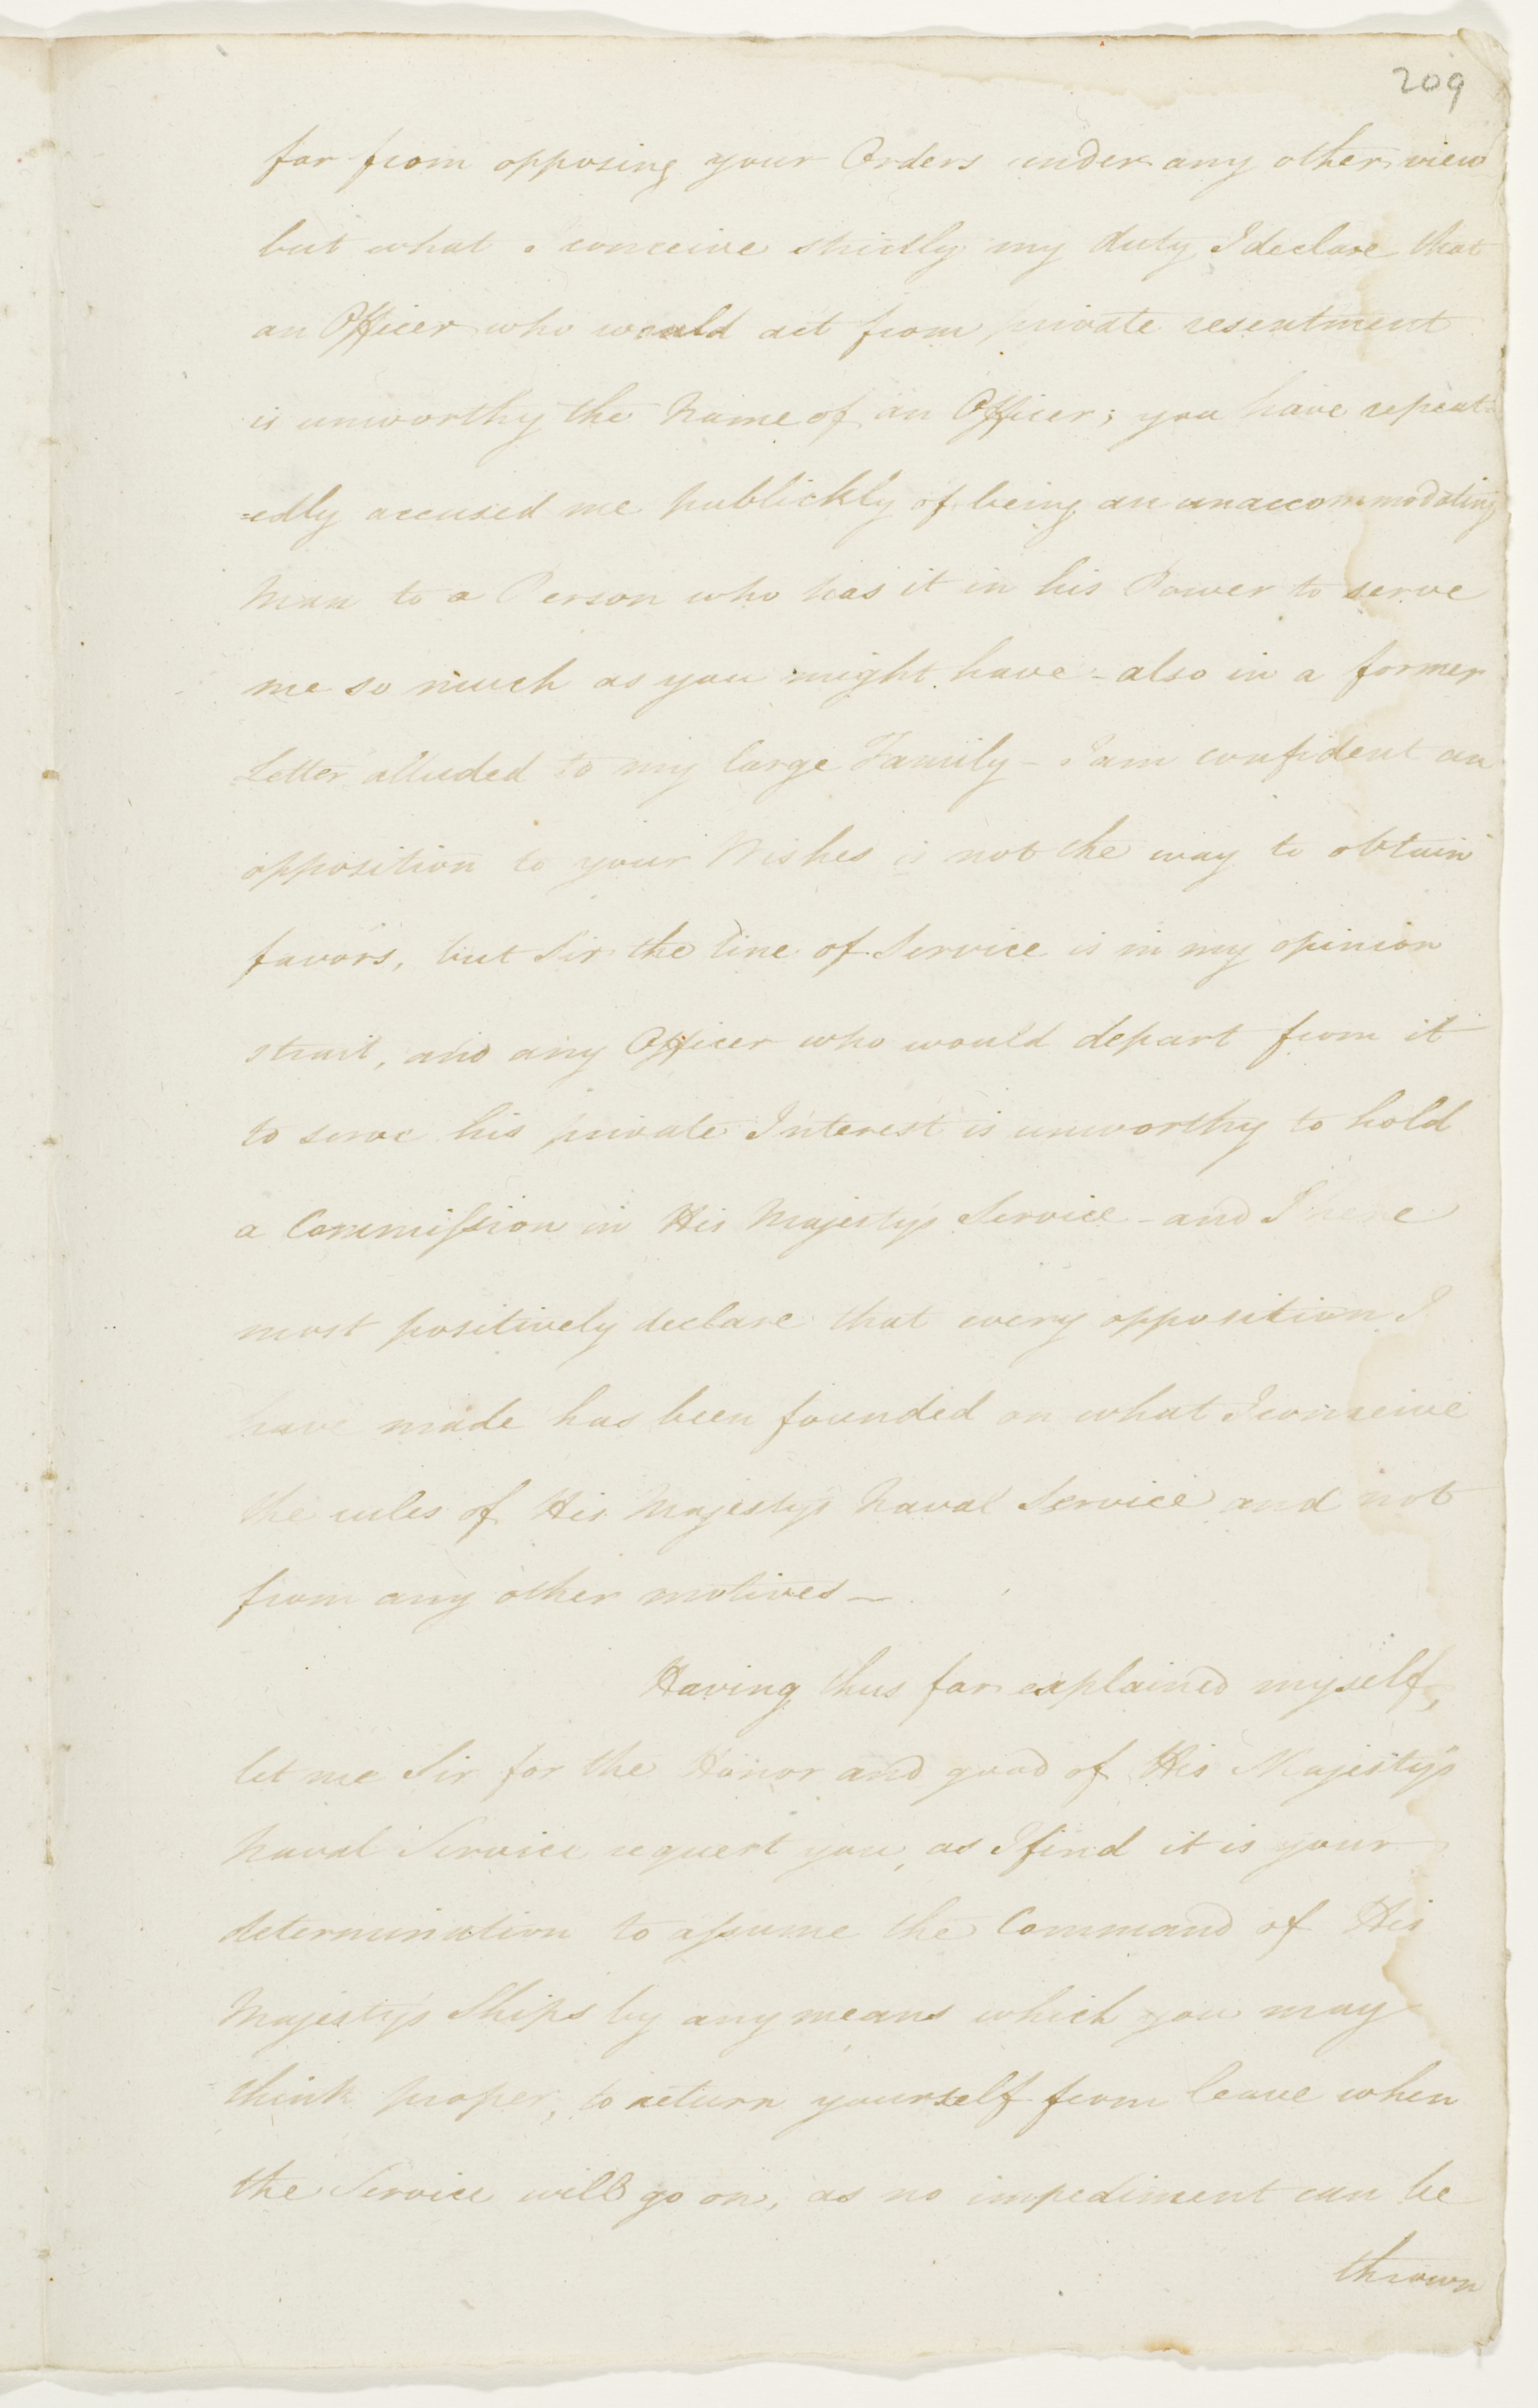 209
far from opposing your Orders under any other view
but what I conceive strictly my duty, I declare that
an Officer who would act from private resentment
is unworthy the Name of an Officer; you have repeat=
=edly accused me publickly of being an unaccommodating
Man to a Person who has it in his Power to serve
me so much as you might have - also in a former
Letter alluded to my large Family - I am confident an
opposition to your Wishes is not the way to obtain
favors, but Sir the line of Service is in my opinion
strait, and any Officer who would depart from it
to serve his private Interest is unworthy to hold
a Commission in His Majesty's Service - and I here
most positively declare that every opposition I
have made has been founded on what I conceive
the rules of His Majesty's Naval Service and not
from any other motives —
Having thus far explained myself,
let me Sir for the Honor and good of His Majesty's
Naval Service request you, as I find it is your
determination to assume the Command of His
Majesty's Ships by any means which you may
think proper, to return yourself from leave when
the Service will go on, as no impediment can be
thrown